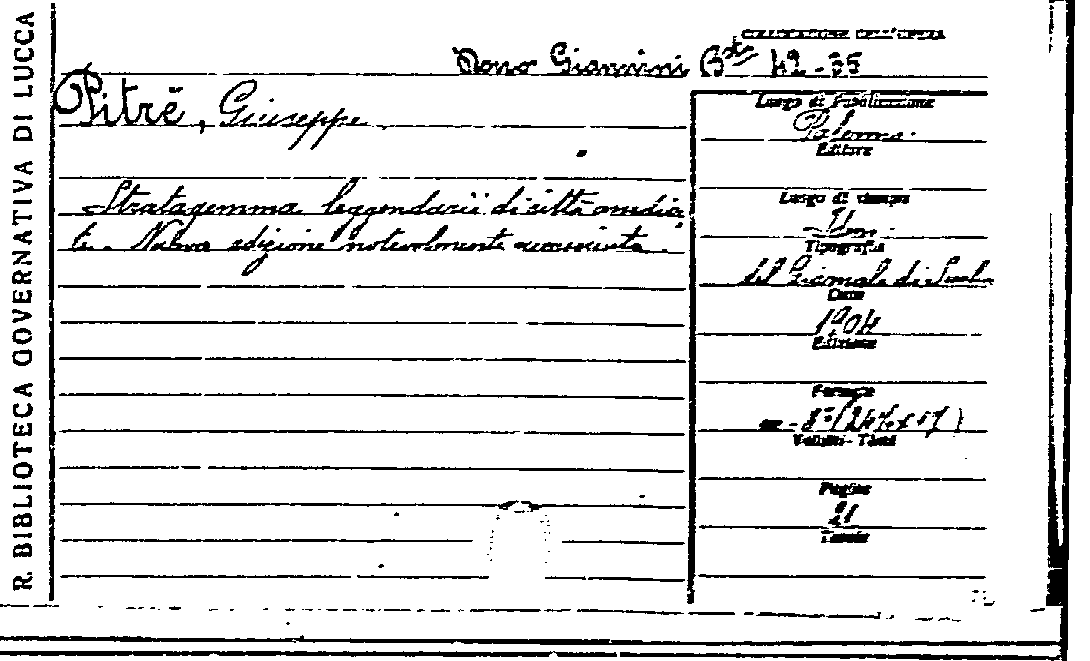 R. BIBLIOTECA GOVERNATIVA DI LUCCA
COLLOCAZIONE DELL'OPERA
Dono Giannini Bta 42-55
Pitrè, Giuseppe
Stratagemma leggendarii di città assedia
te. Nuova edizione notevolmente accresciuta.
Luogo di Pubblicazione
Palermo.
Editore
Luogo di stampa
Idem.
Tipografia
del Giornale di
Data
1904
Edizione
Formato
in-8° (24½ x 17)
Volumi - Tomi
Pagine
21
Tavole